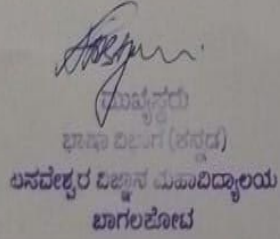 ಮುಖ್ಯಸ್ಥರು
ಭಾಷಾ ವಿಭಾಗ (ಕನ್ನಡ)
ಬಸವೇಶ್ವರ ವಿಜ್ಞಾನ ಮಹಾವಿದ್ಯಾಲಯ
ಬಾಗಲಕೋಟ